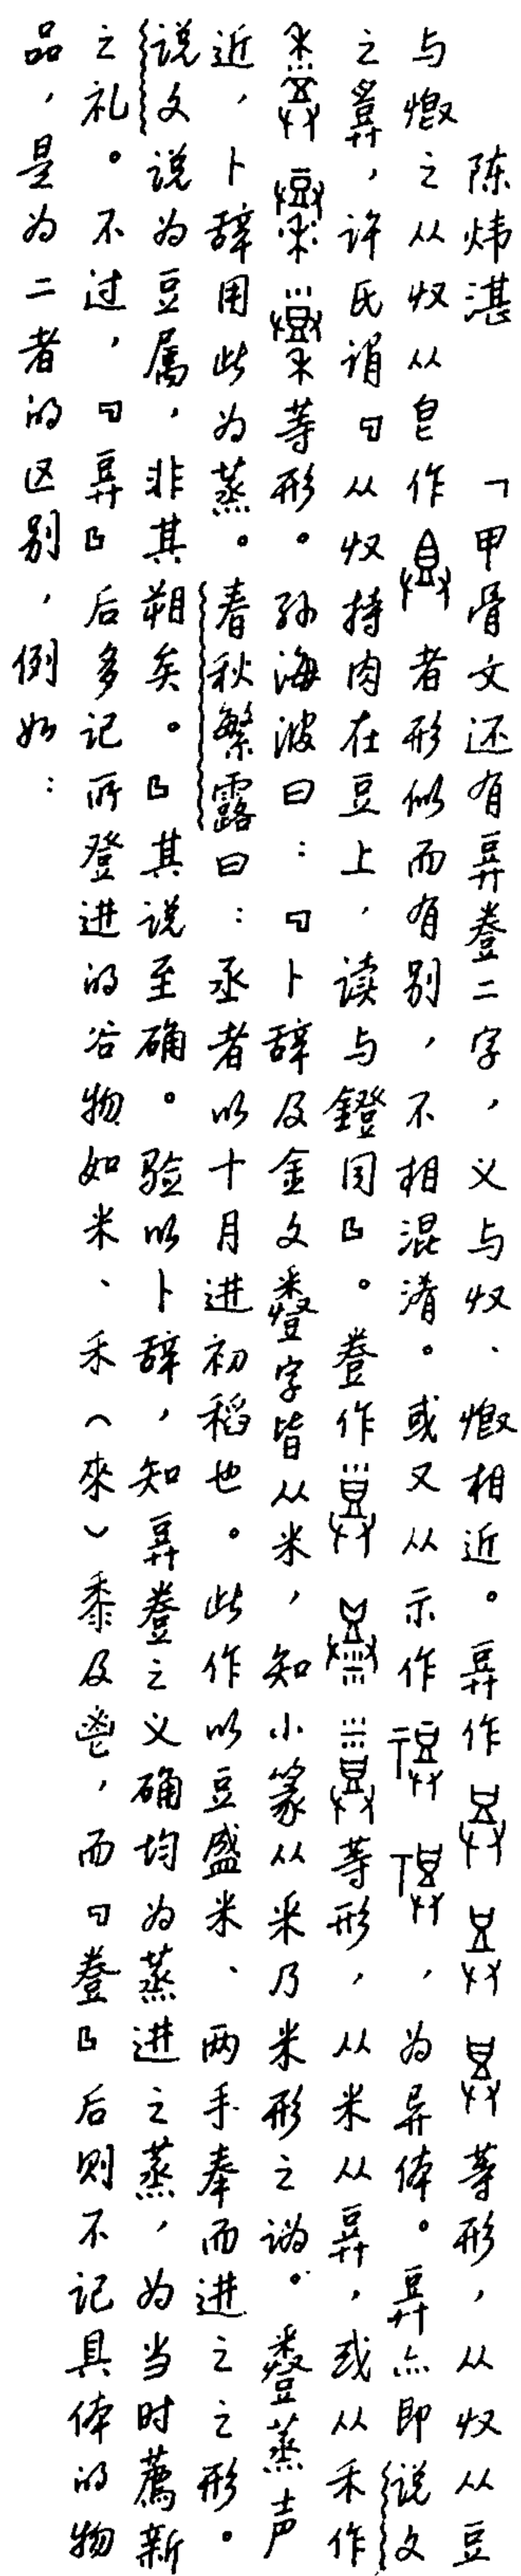 陈炜湛　「甲骨文还有二字，义与収、相近。作等形，从収从豆
与之从収从皀作者形似而有别，不相混淆。或又从示作，为异体。亦即说文
之，许氏谓『从収持肉在豆上，读与鐙同』。作等形，从米从，或从禾作
等形。孙海波曰：『卜辞及金文字皆从米，知小篆从釆乃米形之讹。蒸声
近，卜辞用此为蒸。春秋繁露曰：丞者以十月进初稻也。此作以豆盛米、两手奉而进之之形。
说文说为豆属，非其朔矣。』其说至确。验以卜辞，知之义确均为蒸进之蒸，为当时薦新
之礼。不过，『』后多记所登进的谷物如米、禾（來）黍及鬯，而『』后则不记具体的物
品，是为二者的区别，例如：